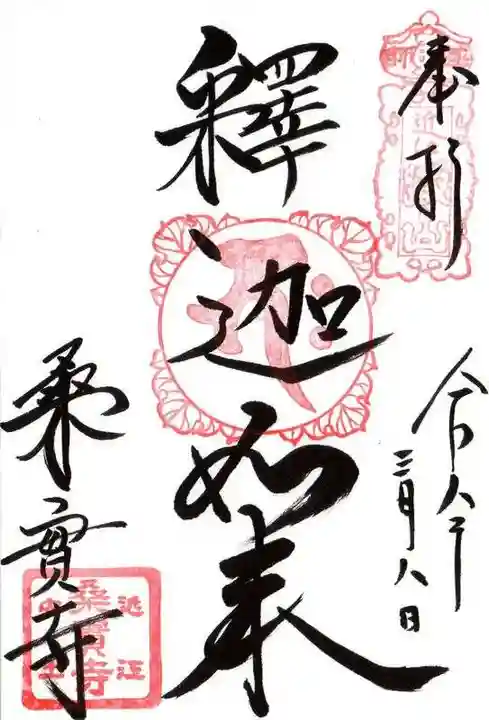 奉拝
令和八年
三月八日
釋迦如来
桑實寺
近江
桑實寺